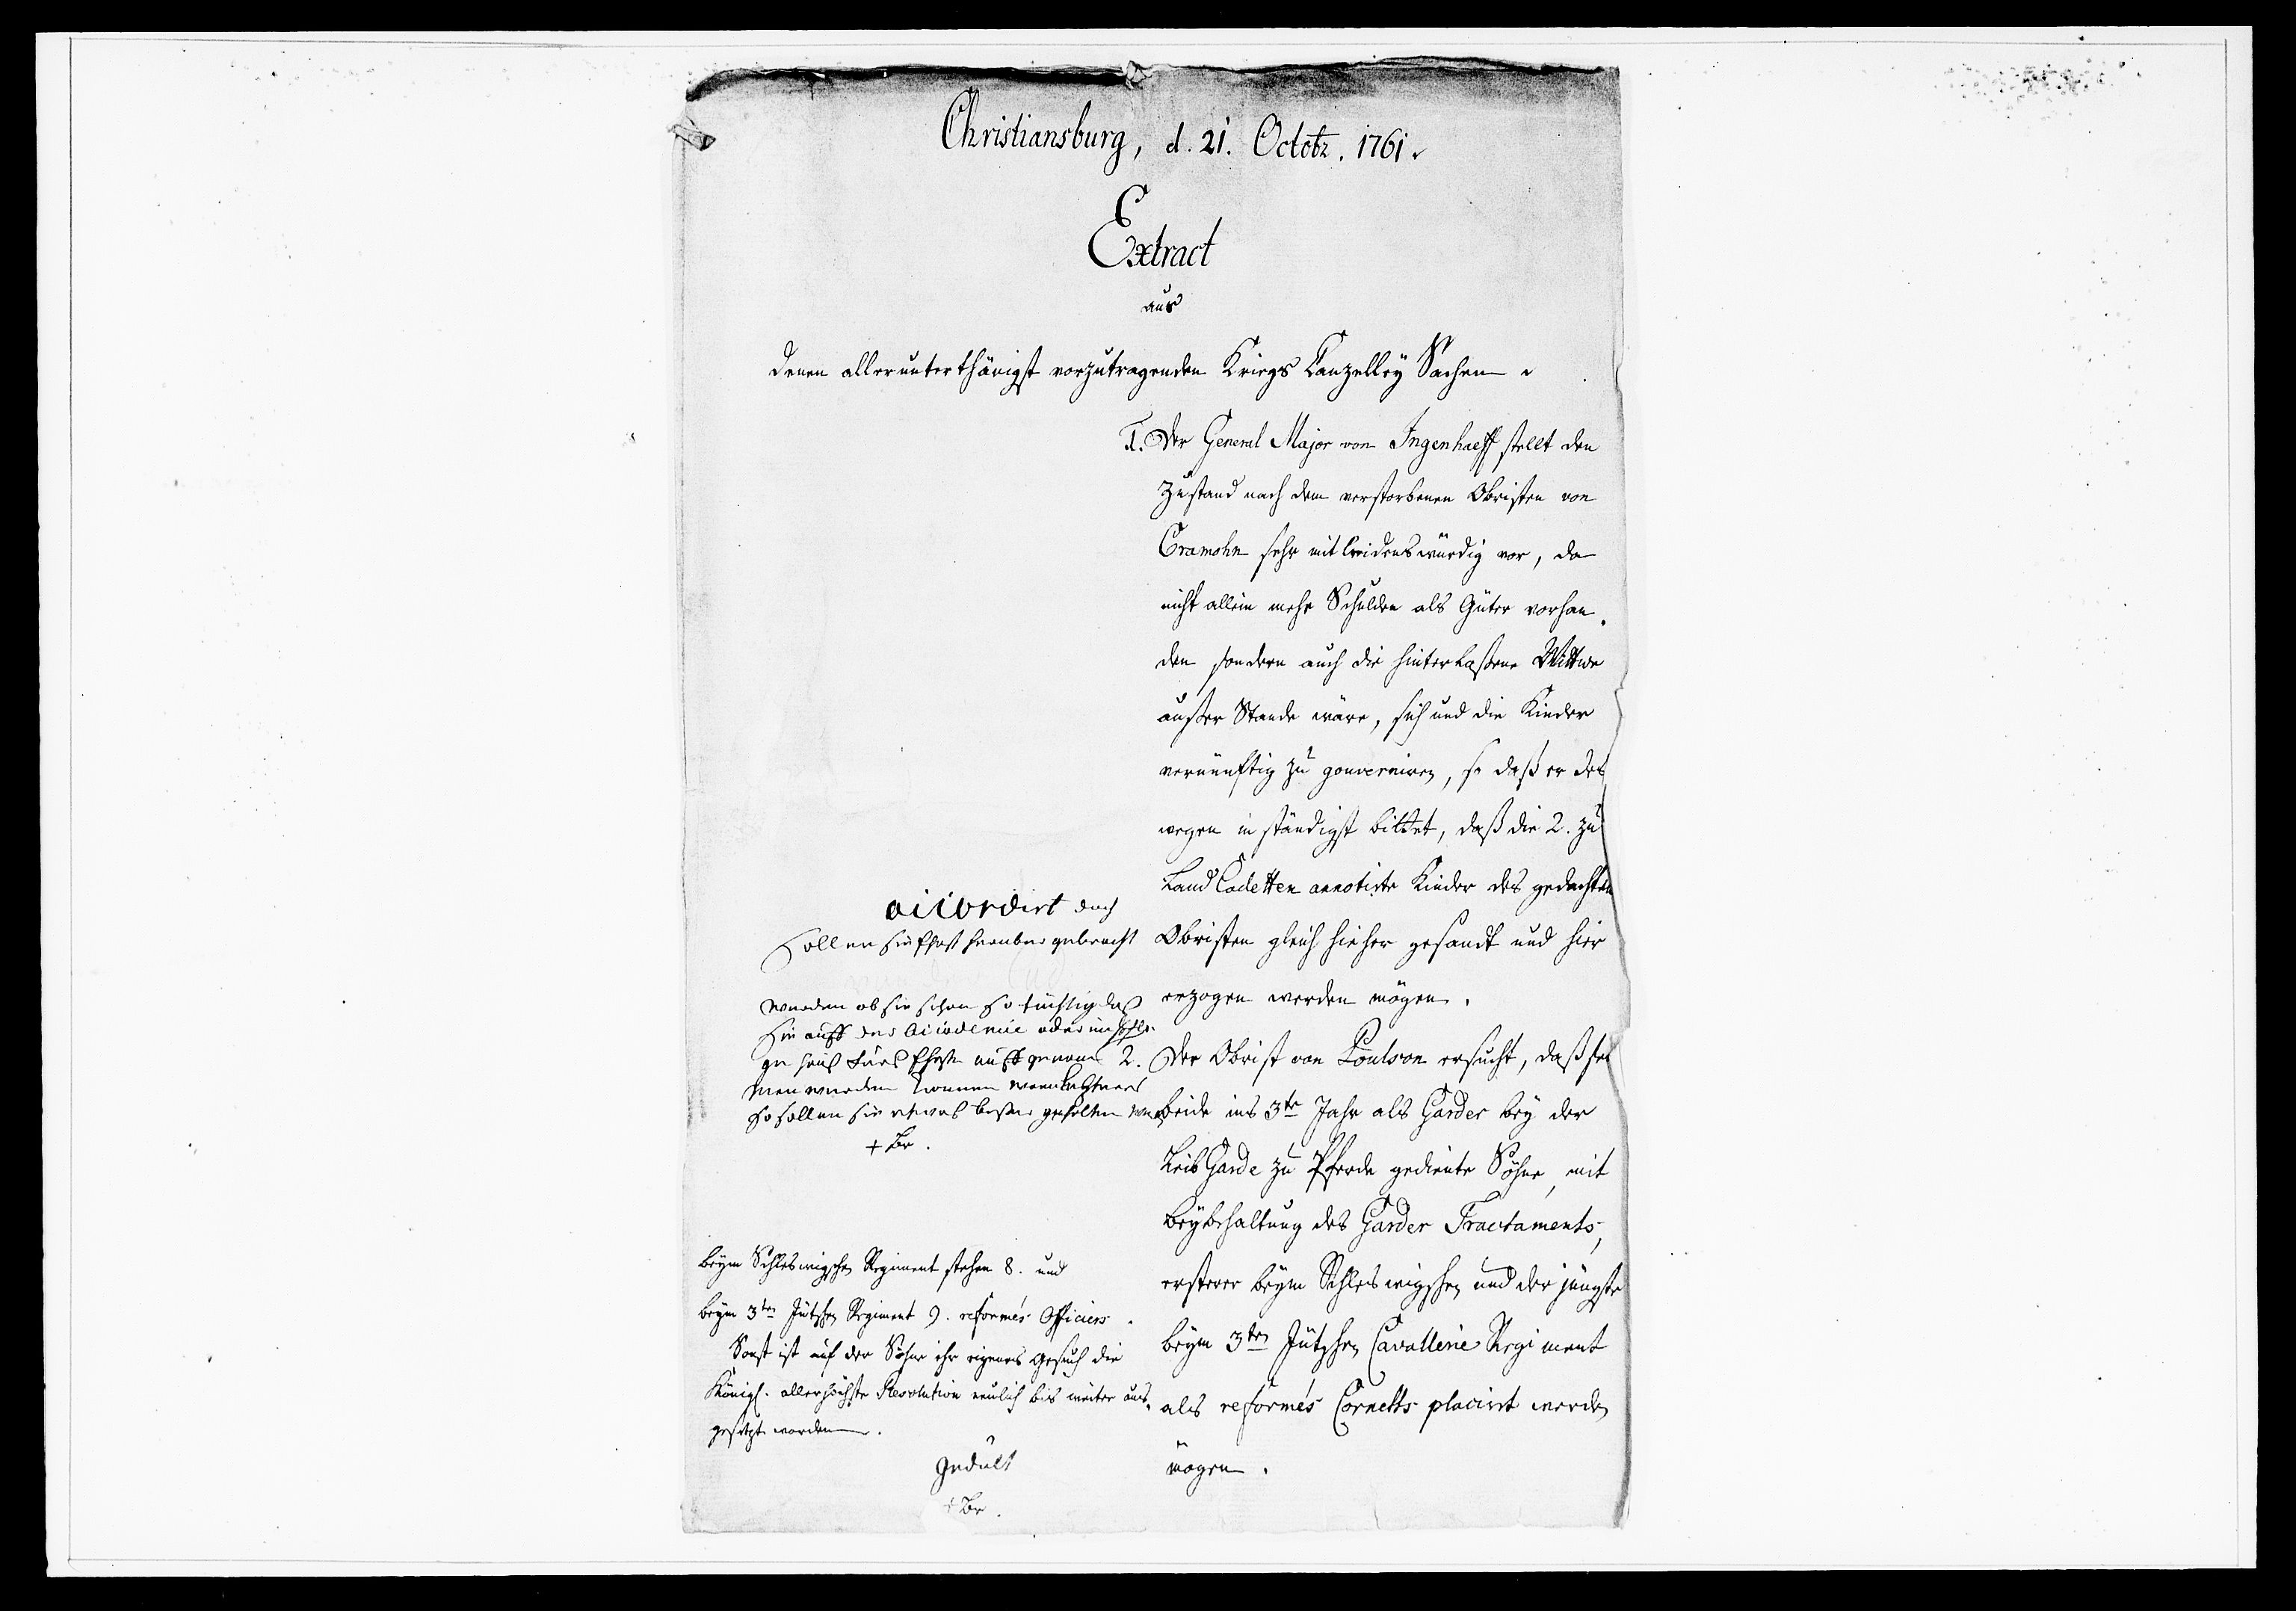 Christiansburg, d. 21. Octobr. 1761.
Extract
aus
denen allerunterthänigst vorzutragenden Kriegs Canzelley Sachen.
1. Der General Major von Ingenhaeff stellt den
Zustand nach dem verstorbenen Obristen von
Cramohn sehr mitleidenswürdig vor, da
nicht allein mehr Schulden als Güter vorhan-
den sondern auch die hinterlaßene Wittwe
außer Stande wäre, sich und die Kinder
vernünftig zu gouverniren, so daß er des
wegen inständigst bittet, daß die 2. zu
Land Cadetten annotirte Kinder des gedachten
Obristen gleich hieher gesandt und hier
erzogen werden mögen.
accordirt doch
sollen sie herüber gebracht
werden ob sie schon so tüchtig daß
sie auff der Academie oder
auffgenom
men werden können
so sollen sie etwas beßer gehalten
+ Br.
2. Der Obrist von Poulson ersucht, daß sei
beide ins 3te Jahr als Garder bey der
Leib Garde zu Pferde gediente Söhne, mit
Beybehaltung des Garder Tractaments,
ersterer beym Schleswigschen und der jüngste
beym 3ten Jütschen Cavallerie Regiment
als reformés Cornetts placirt werden
mögen.
beym Schleswigschen Regiment stehen 8. und
beym 3ten Jütschen Regiment 9. reformés Officiers.
Sonst ist auf der Söhne ihr eigenes Gesuch die
Königl. allerhöchste Resolution neulich bis weiter aus-
gesetzt worden.
Gedult
+ Br.